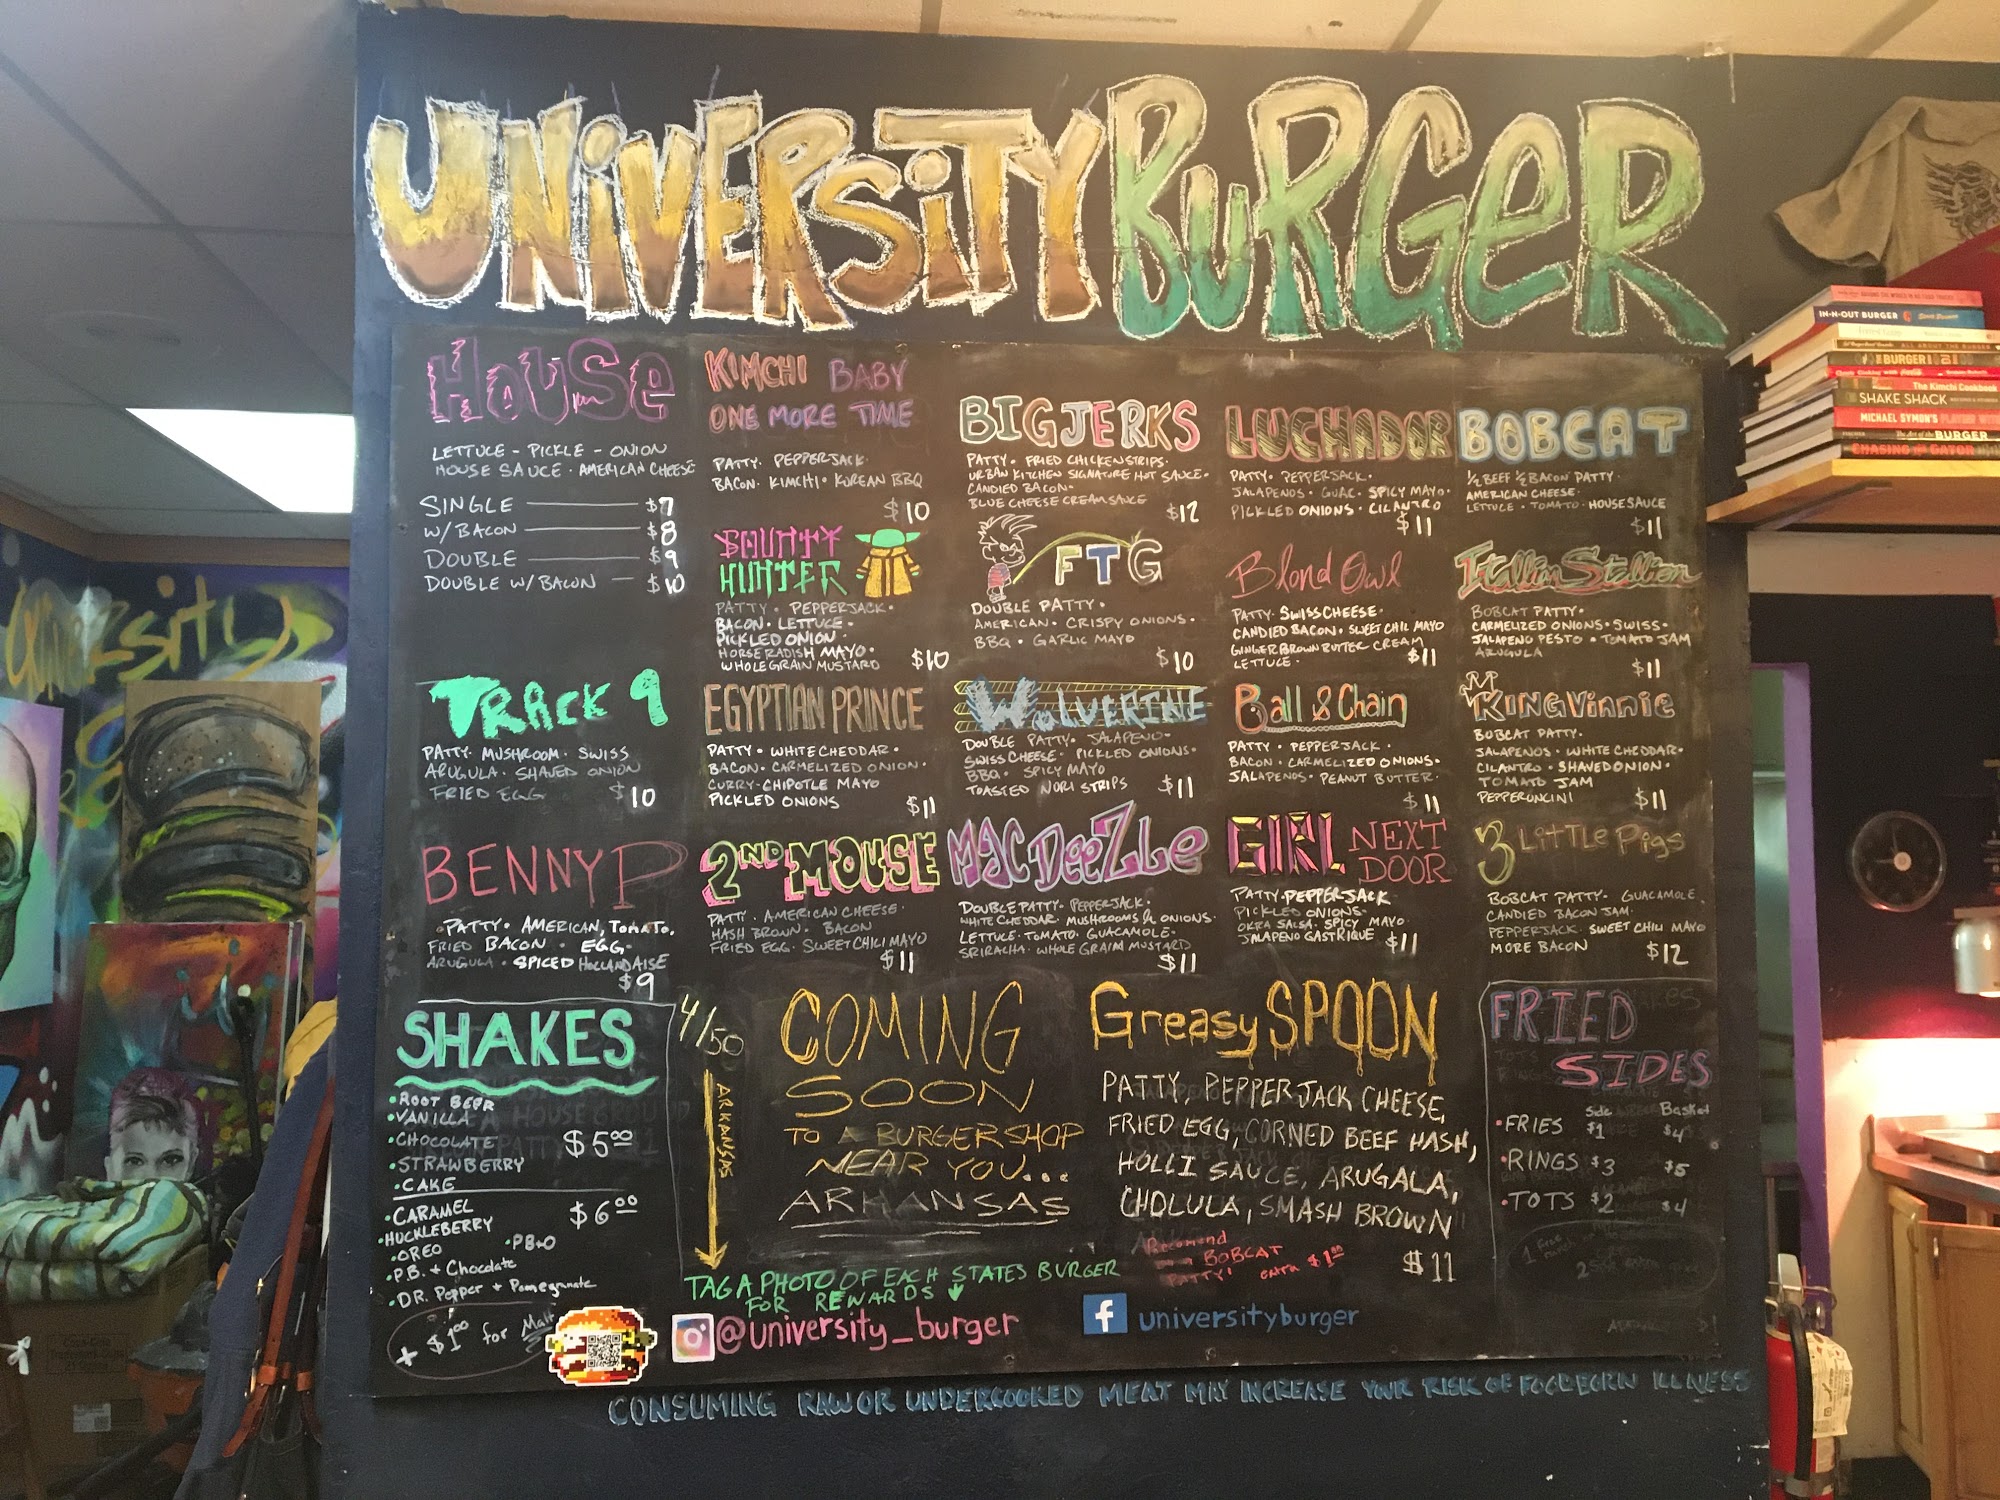 UNiVERSiTY BURGeR
HOUSe
LETTUCE - PICKLE - ONION
HOUSE SAUCE · AMERICAN CHEESE
SINGLE $7
W/BACON $8
DOUBLE $9
DOUBLE W/BACON $10
KIMCHI BABY
ONE MORE TIME
PATTY · PEPPERJACK ·
BACON · KIMCHI · KOREAN BBQ
$10
BIG JERKS
PATTY · FRIED CHICKEN STRIPS ·
URBAN KITCHEN SIGNATURE HOT SAUCE ·
CANDIED BACON ·
BLUE CHEESE CREAM SAUCE
$12
LUCHADOR
PATTY · PEPPERJACK ·
JALAPENOS · GUAC · SPICY MAYO ·
PICKLED ONIONS · CILANTRO
$11
BOBCAT
1/2 BEEF 1/2 BACON PATTY ·
AMERICAN CHEESE ·
LETTUCE · TOMATO · HOUSE SAUCE
$11
BOUNTY
HUNTER
PATTY · PEPPERJACK ·
BACON · LETTUCE ·
PICKLED ONION ·
HORSERADISH MAYO ·
WHOLE GRAIN MUSTARD $10
FTG
DOUBLE PATTY ·
AMERICAN · CRISPY ONIONS ·
BBQ · GARLIC MAYO
$10
Blond Owl
PATTY · SWISS CHEESE ·
CANDIED BACON · SWEET CHIL MAYO
GINGER BROWN BUTTER CREAM
LETTUCE · $11
Itallian Stallion
BOBCAT PATTY ·
CARMELIZED ONIONS · SWISS ·
JALAPENO PESTO · TOMATO JAM
ARUGULA
$11
TRACK 9
PATTY · MUSHROOM · SWISS
ARUGULA · SHAVED ONION
FRIED EGG $10
EGYPTIAN PRINCE
PATTY · WHITE CHEDDAR ·
BACON · CARMELIZED ONION ·
CURRY-CHIPOTLE MAYO
PICKLED ONIONS $11
WOLVERINE
DOUBLE PATTY · JALAPENO ·
SWISS CHEESE · PICKLED ONIONS ·
BBQ · SPICY MAYO
TOASTED NORI STRIPS $11
Ball & Chain
PATTY · PEPPERJACK ·
BACON · CARMELIZED ONIONS ·
JALAPENOS · PEANUT BUTTER ·
$11
KING Vinnie
BOBCAT PATTY ·
JALAPENOS · WHITE CHEDDAR ·
CILANTRO · SHAVED ONION ·
TOMATO JAM
PEPPERONCINI $11
BENNY P
PATTY · AMERICAN, TOMATO,
FRIED BACON · EGG ·
ARUGULA · SPICED HOLLANDAISE
$9
2ND MOUSE
PATTY · AMERICAN CHEESE ·
HASH BROWN · BACON
FRIED EGG · SWEET CHILI MAYO
$11
MAC DeeZLe
DOUBLE PATTY · PEPPERJACK ·
WHITE CHEDDAR · MUSHROOMS & ONIONS ·
LETTUCE · TOMATO · GUACAMOLE ·
SRIRACHA · WHOLE GRAIM MUSTARD
$11
GIRL NEXT
DOOR
PATTY · PEPPERJACK
PICKLED ONIONS ·
OKRA SALSA · SPICY MAYO
JALAPENO GASTRIQUE $11
3 LiTTLe PiGs
BOBCAT PATTY · GUACAMOLE
CANDIED BACON JAM ·
PEPPERJACK · SWEET CHILI MAYO
MORE BACON $12
SHAKES
· ROOT BEER
· VANILLA
· CHOCOLATE $5.00
· STRAWBERRY
· CAKE
· CARAMEL $6.00
· HUCKLEBERRY
· OREO · PB+O
· P.B. + Chocolate
· DR. Pepper + Pomegranate
+ $1.00 for Malt
4/50
ARKANSAS
COMING
SOON
TO A BURGER SHOP
NEAR YOU...
ARKANSAS
Greasy SPOON
PATTY, PEPPERJACK CHEESE,
FRIED EGG, CORNED BEEF HASH,
HOLLI SAUCE, ARUGALA,
CHOLULA, SMASH BROWN
Recomend
on a BOBCAT
PATTY! extra $1.00
$11
FRIED
SIDES
Side Basket
· FRIES $1 $4
· RINGS $3 $5
· TOTS $2 $4
TAG A PHOTO OF EACH STATES BURGER
FOR REWARDS
@university_burger
f universityburger
CONSUMING RAW OR UNDERCOOKED MEAT MAY INCREASE YOUR RISK OF FOODBORN ILLNESS
University
IN-N-OUT BURGER
ALL ABOUT THE BURGER
The Kimchi Cookbook
SHAKE SHACK
MICHAEL SYMON'S PLAYING WITH
The Art of the BURGER
CHASING THE GATOR